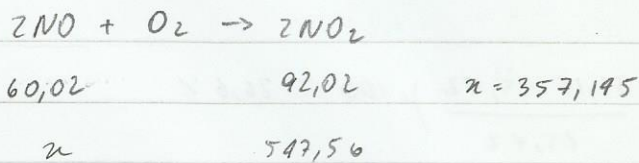 2NO + O₂ → 2NO₂
60,02 92,02 x = 357,145
x 547,56